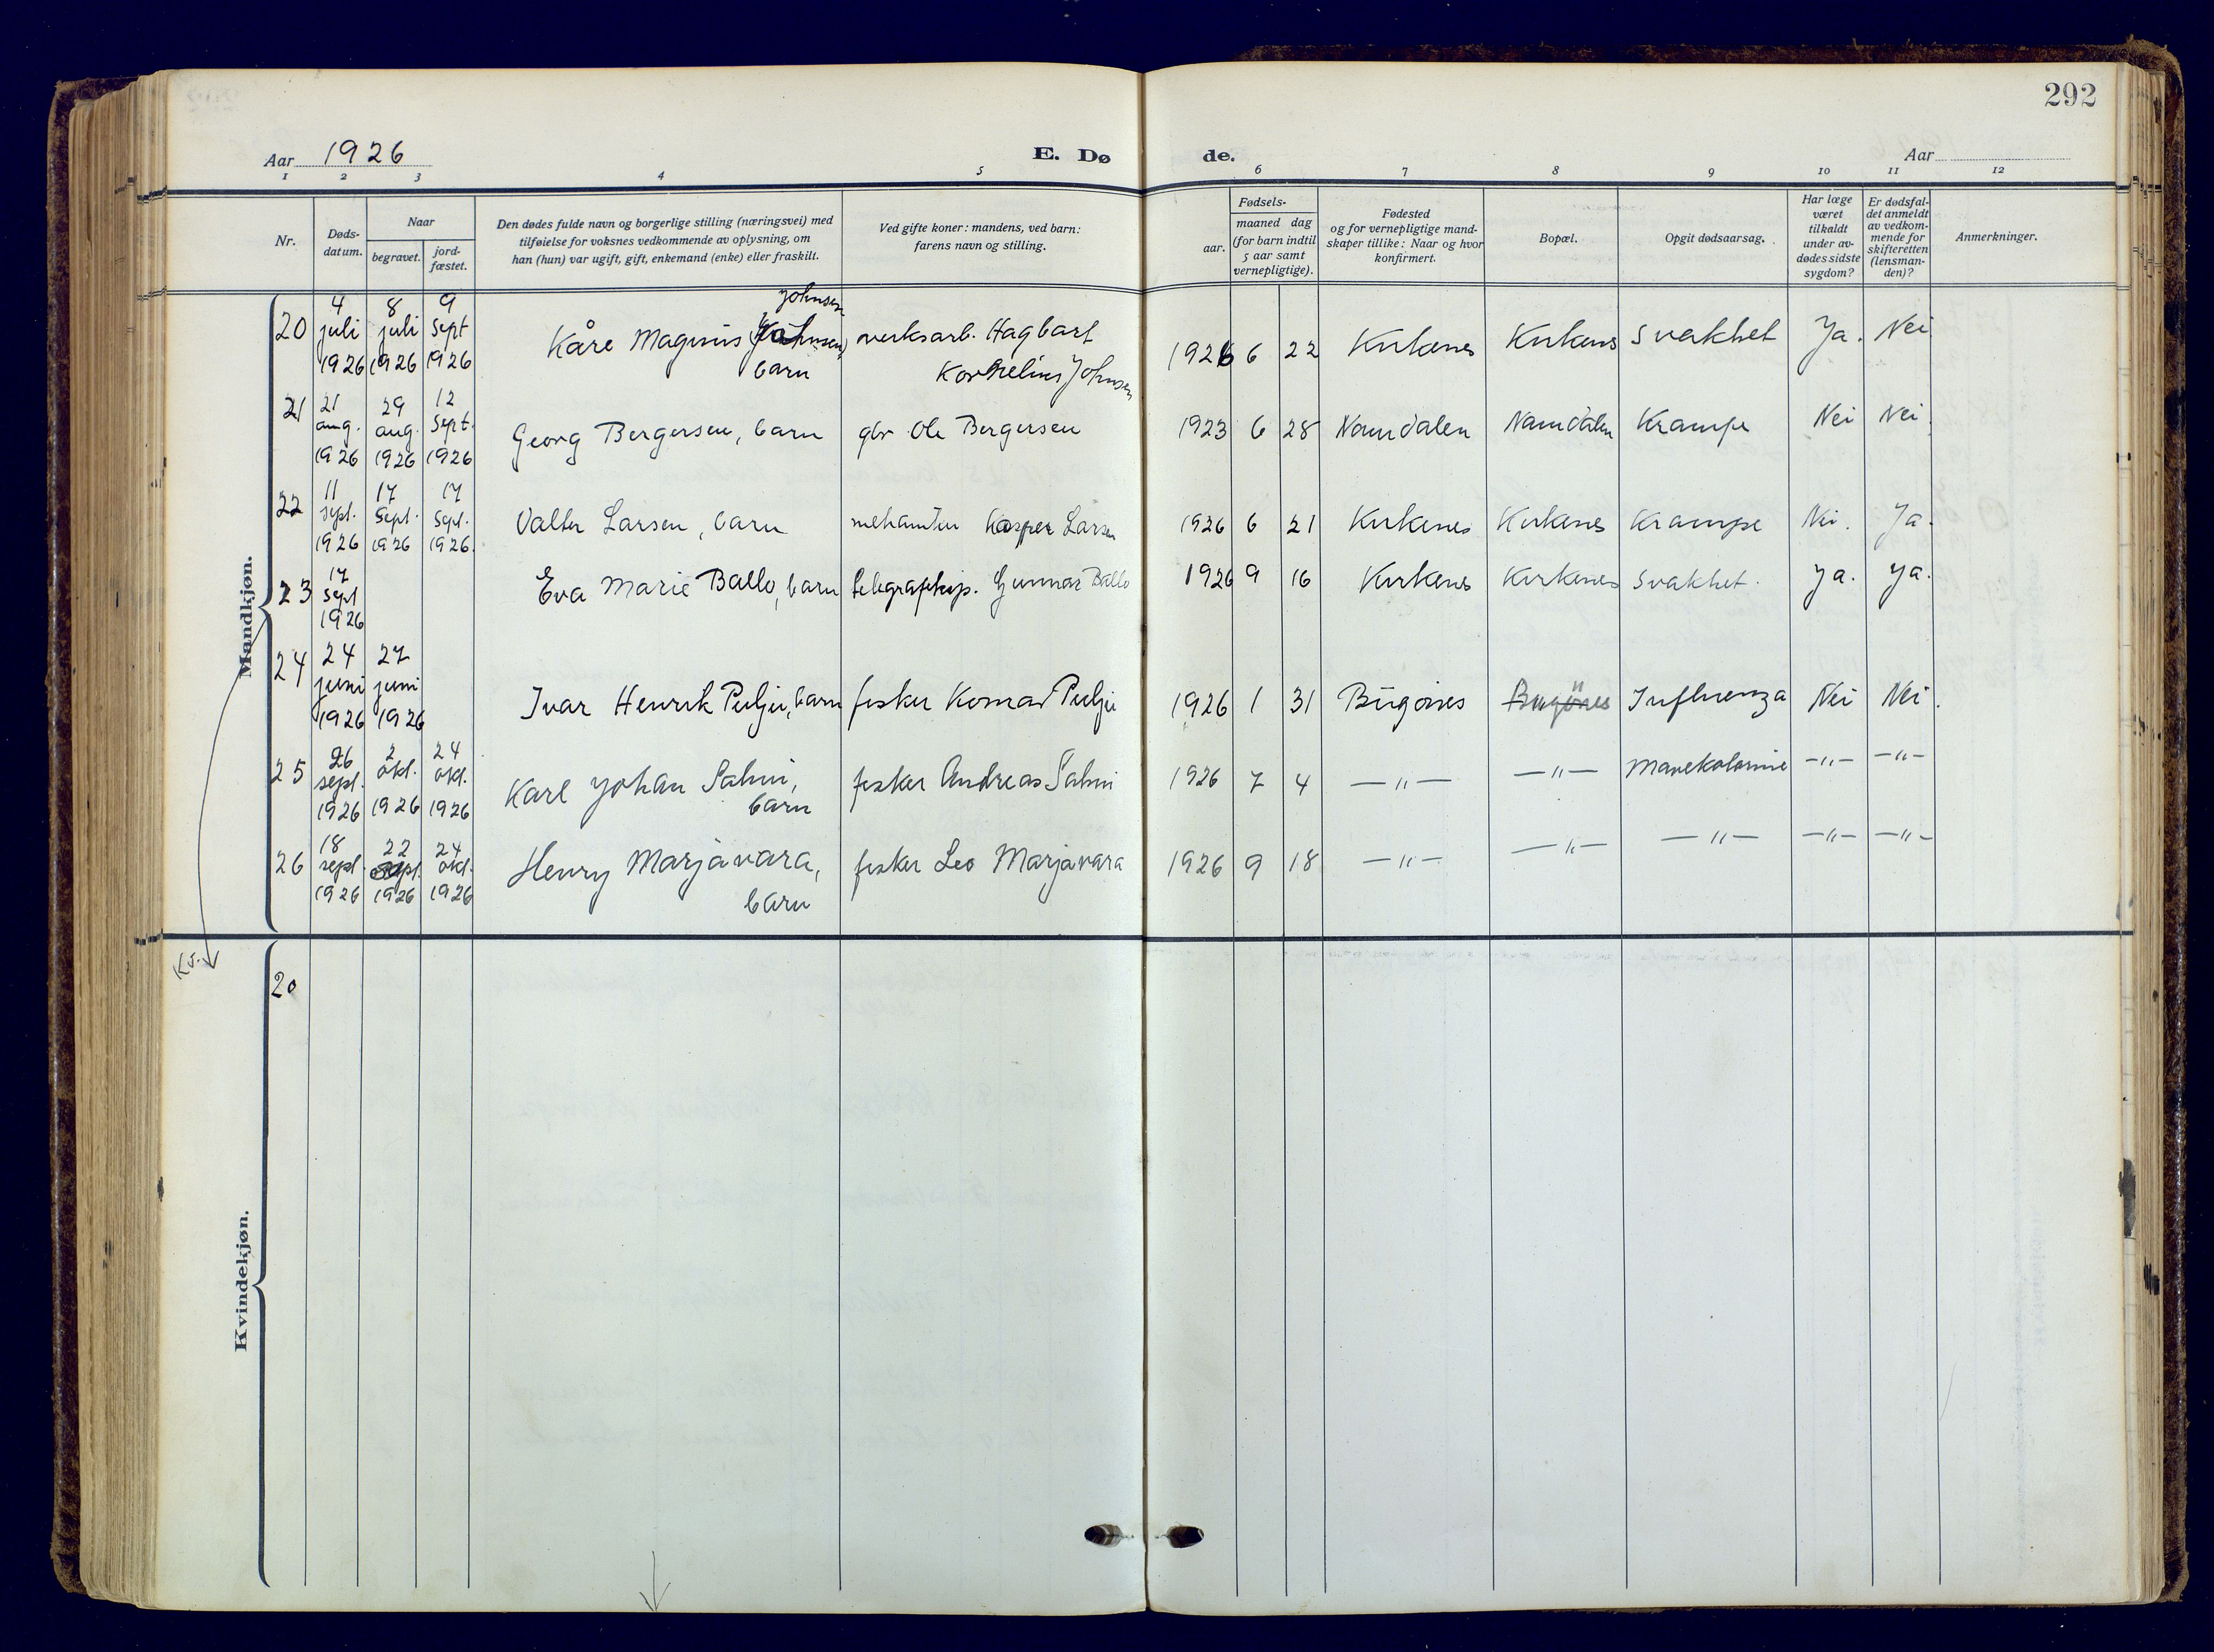 292
Aar 1926
E. Dø de.
Aar
1 2 3 4 5 6 7 8 9 10 11 12
Nr.
Døds-
datum.
Naar
begravet.
jord-
fæstet.
Den dødes fulde navn og borgerlige stilling (næringsvei) med
tilføielse for voksnes vedkommende av oplysning, om
han (hun) var ugift, gift, enkemand (enke) eller fraskilt.
Ved gifte koner: mandens, ved barn:
farens navn og stilling.
Fødsels-
aar.
maaned dag
(for barn indtil
5 aar samt
vernepligtige).
Fødested
og for vernepligtige mand-
skaper tillike: Naar og hvor
konfirmert.
Bopæl.
Opgit dødsaarsag.
Har læge
været
tilkaldt
under av-
dødes sidste
sygdom?
Er dødsfal-
det anmeldt
av vedkom-
mende for
skifteretten
(lensman-
den)?
Anmerkninger.
Mandkjøn.
20
4
juli
1926
8
juli
1926
9
sept
1926
Johnsen
Kåre Magnus (Johnsen)
barn
verksarb. Hagbart
Kornelius Johnsen
1926 6 22 Kirkenes Kirkenes Svakhet Ja. Nei
21
21
aug.
1926
29
aug.
1926
12
sept.
1926
Georg Bergersen, barn
gbr Ole Bergersen
1923 6 28 Namdalen Namdalen Krampe Nei Nei
22
11
sept.
1926
17
sept.
1926
17
sept.
1926.
Valter Larsen, barn
Kasper Larsen
1926 6 21 Kirkenes Kirkenes Krampe Nei. Ja.
23
17
sept
1926
Eva Marie Ballo, barn
Gunnar Ballo
1926 9 16 Kirkenes Kirkenes Svakhet. Ja. Ja.
24
24
juni
1926
27
juni
1926
Ivar Henrik Pulju, barn
fisker Konrad Pulju
1926 1 31 Bugøines Bugönes Influenza Nei Nei.
25
26
sept.
1926
2
okt.
1926
24
okt.
1926
Karl Johan Salmi,
barn
fisker Andreas Salmi
1926 7 4 —"— —"— —"— —"—
26
18
sept.
1926
22
sept.
1926
24
okt.
1926
Henry Marjavara,
barn
fisker Leo Marjavara
1926 9 18 —"— —"— —"— —"— —"—
Kv.
20
Kvindekjøn.